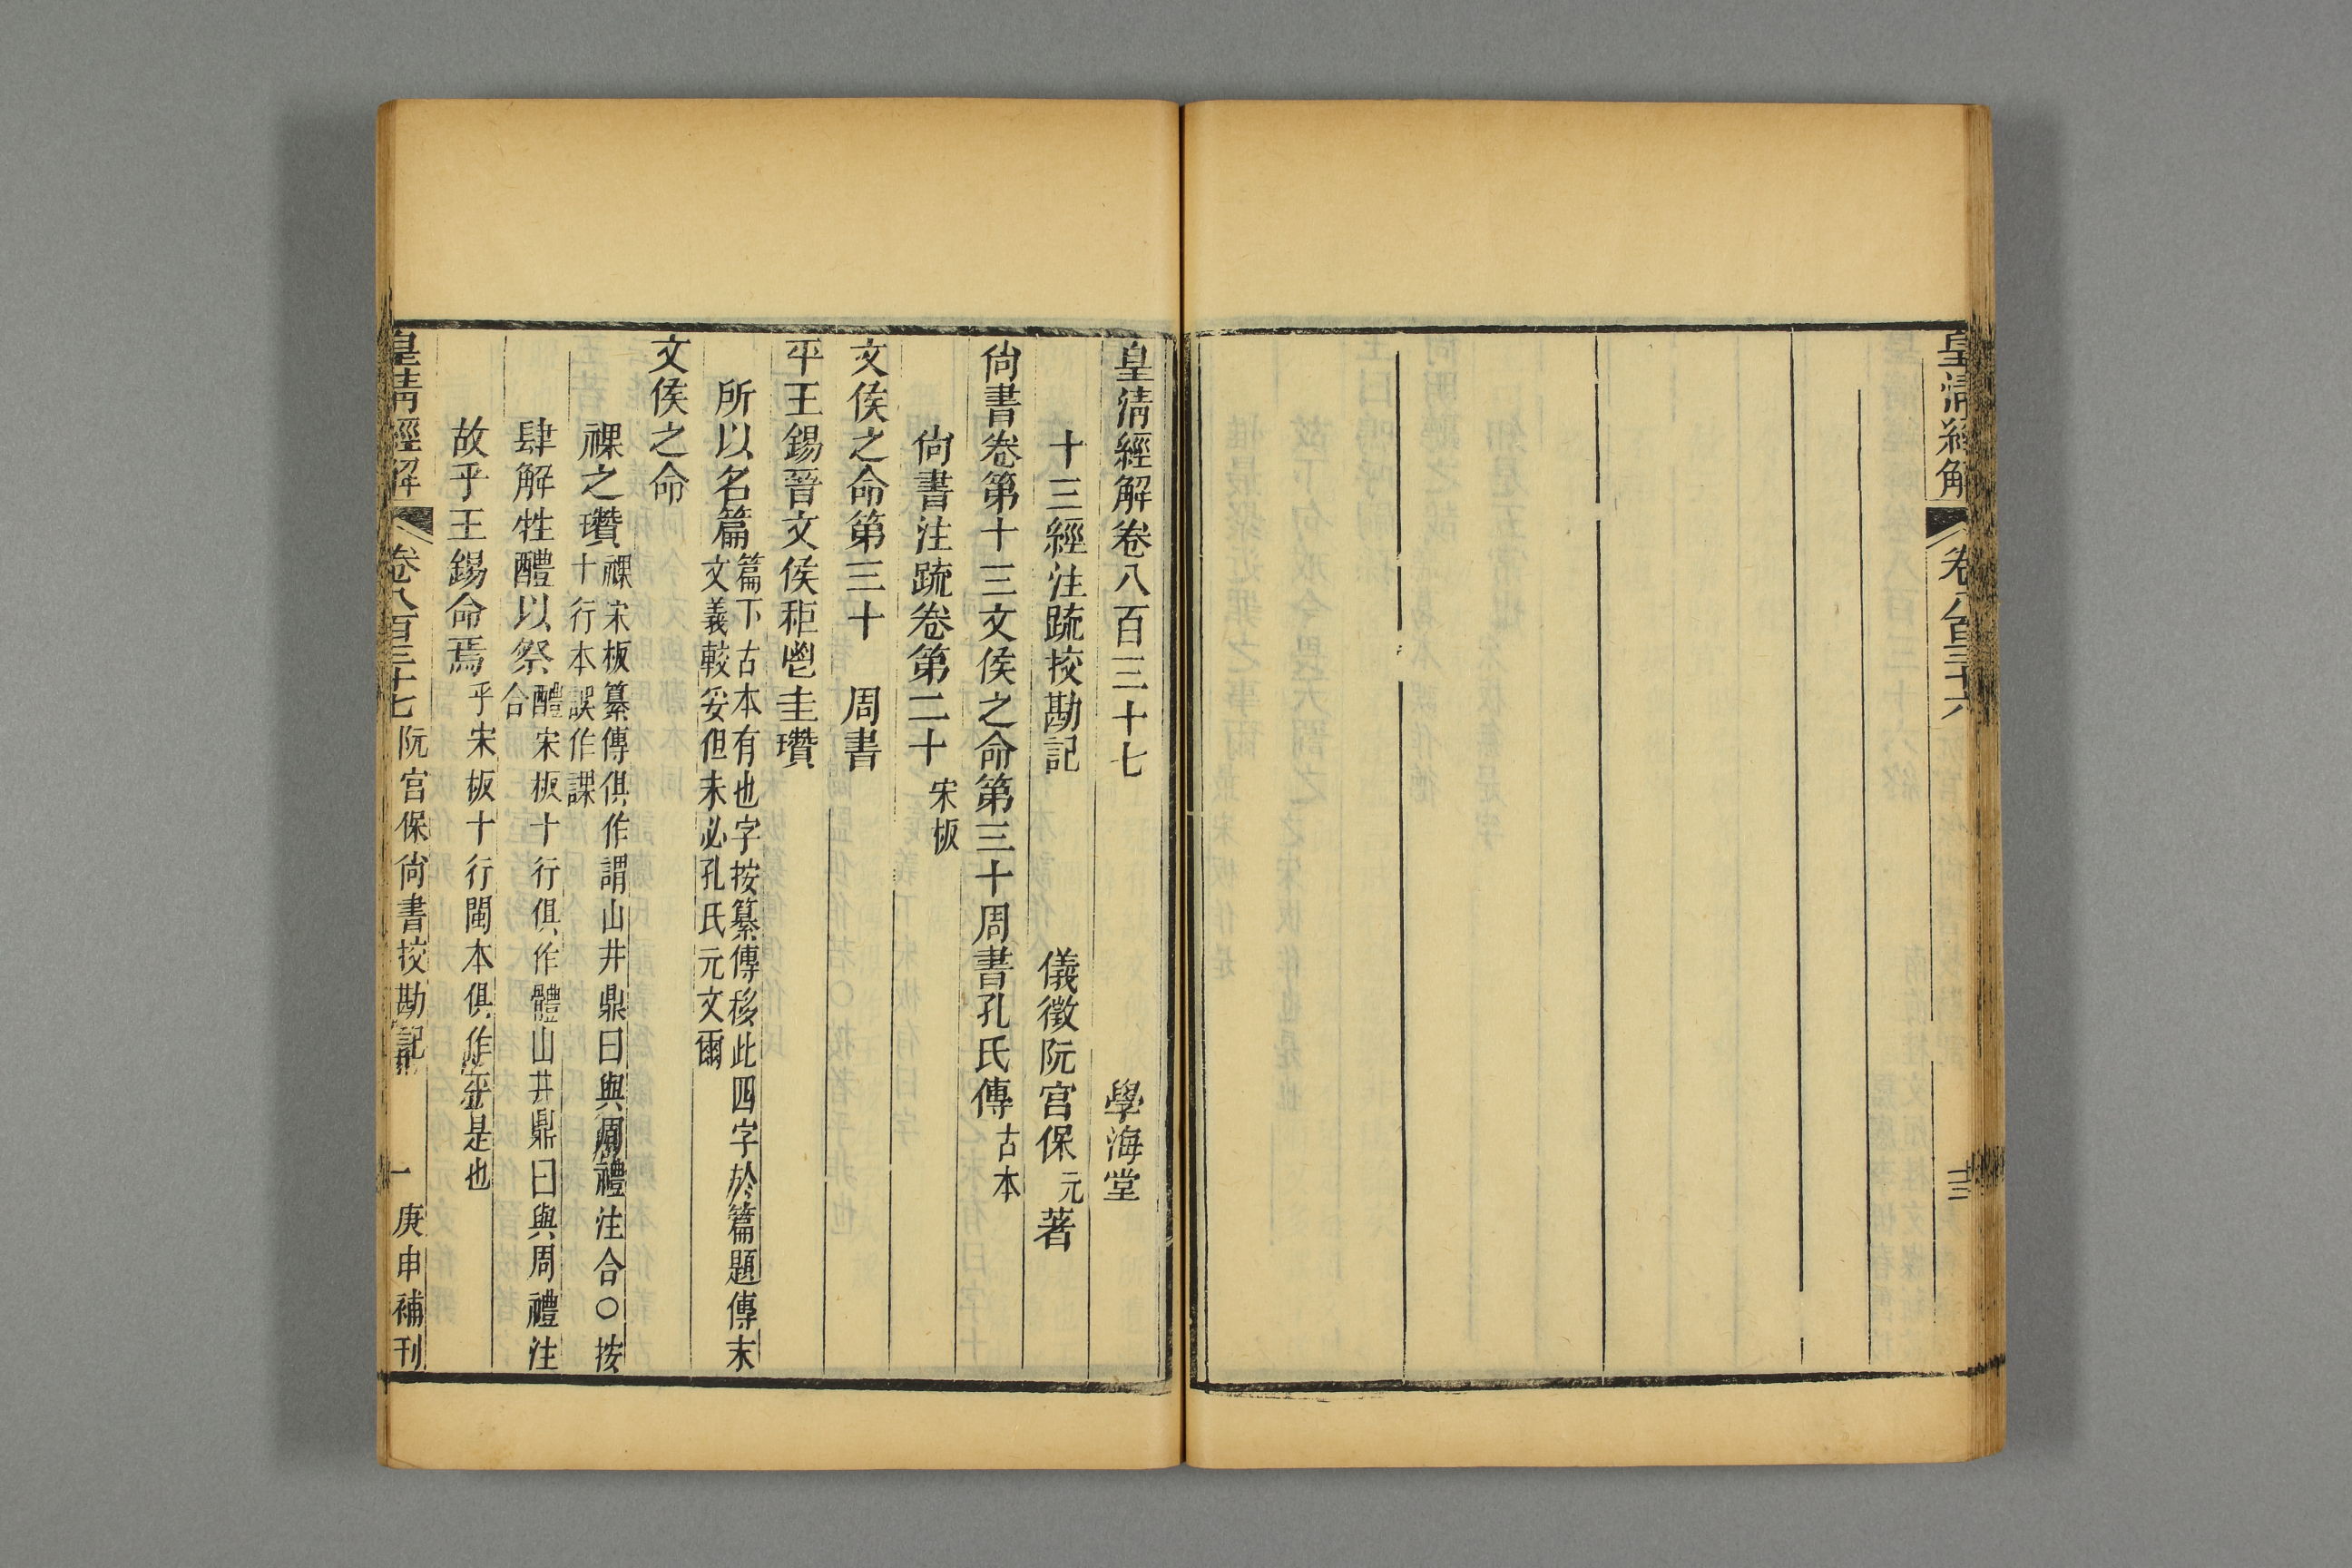 皇清經解
卷八百三十六
十三
皇清經解卷八百三十七
學海堂
十三經注疏挍勘記
儀徵阮宫保元著
尙書卷第十三文侯之命第三十周書孔氏傳古本
尙書注疏卷第二十宋板
文侯之命第三十
周書
平王錫晉文侯秬鬯圭瓚
所以名篇篇下古本有也字按纂傳移此四字於篇題傳末
文義較妥但未必孔氏元文爾
文侯之命
祼之瓚祼宋板纂傳俱作謂山井鼎曰與周禮注合○按
十行本誤作課
肆解牲醴以祭醴宋板十行俱作體山井鼎曰與周禮注
合
故乎王錫命焉乎宋板十行閩本俱作平是也
皇清經解
卷八百三十七
阮宫保尙書挍勘記
一
庚申補刊